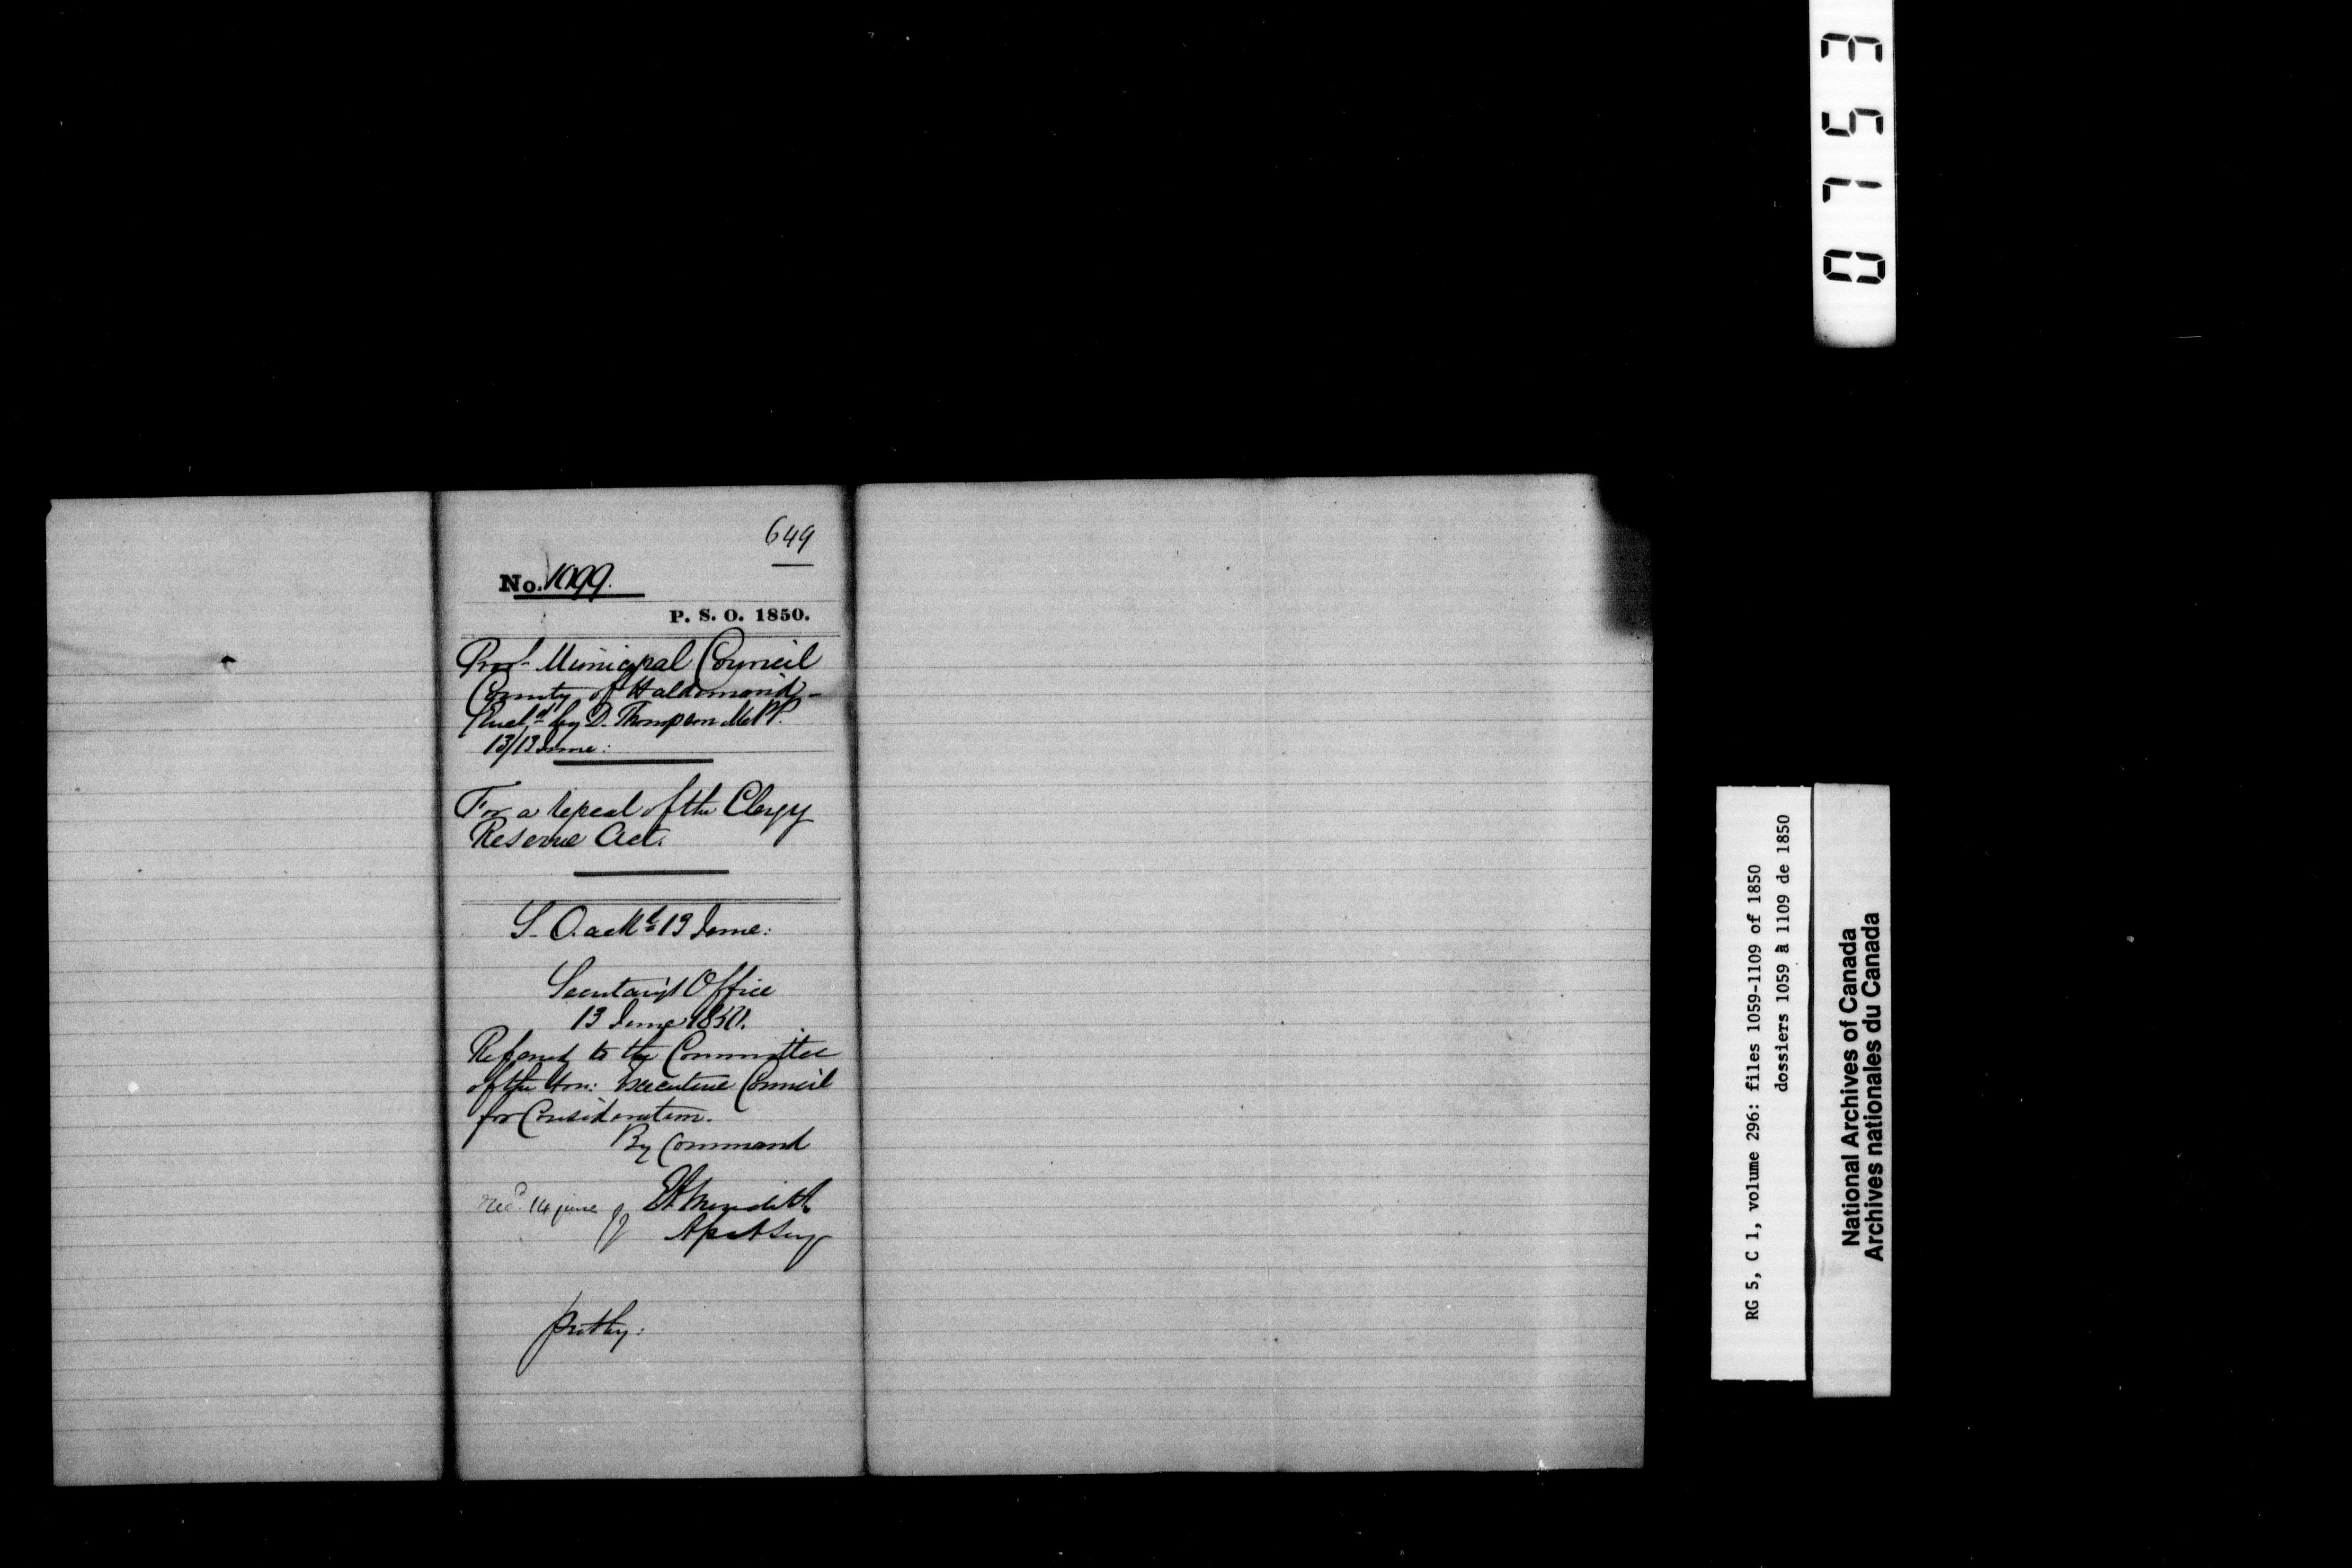 649
No. 1099.
P. S. O. 1850.
Prov'l Municipal Council
County of Haldimand -
by D. Thompson M.P.P.
13/13 June:
For a repeal of the Clergy
Reserve Act.
S. O. ackd 13 June:
Secretary's Office
13 June 1850.
Referred to the Committee
of the Hon: Executive Council
for Consideration.
By Command
Recd 14 june E A Meredith
Asst Secy
0753
RG 5, C 1, volume 296: files 1059-1109 of 1850
dossiers 1059 à 1109 de 1850
National Archives of Canada
Archives nationales du Canada